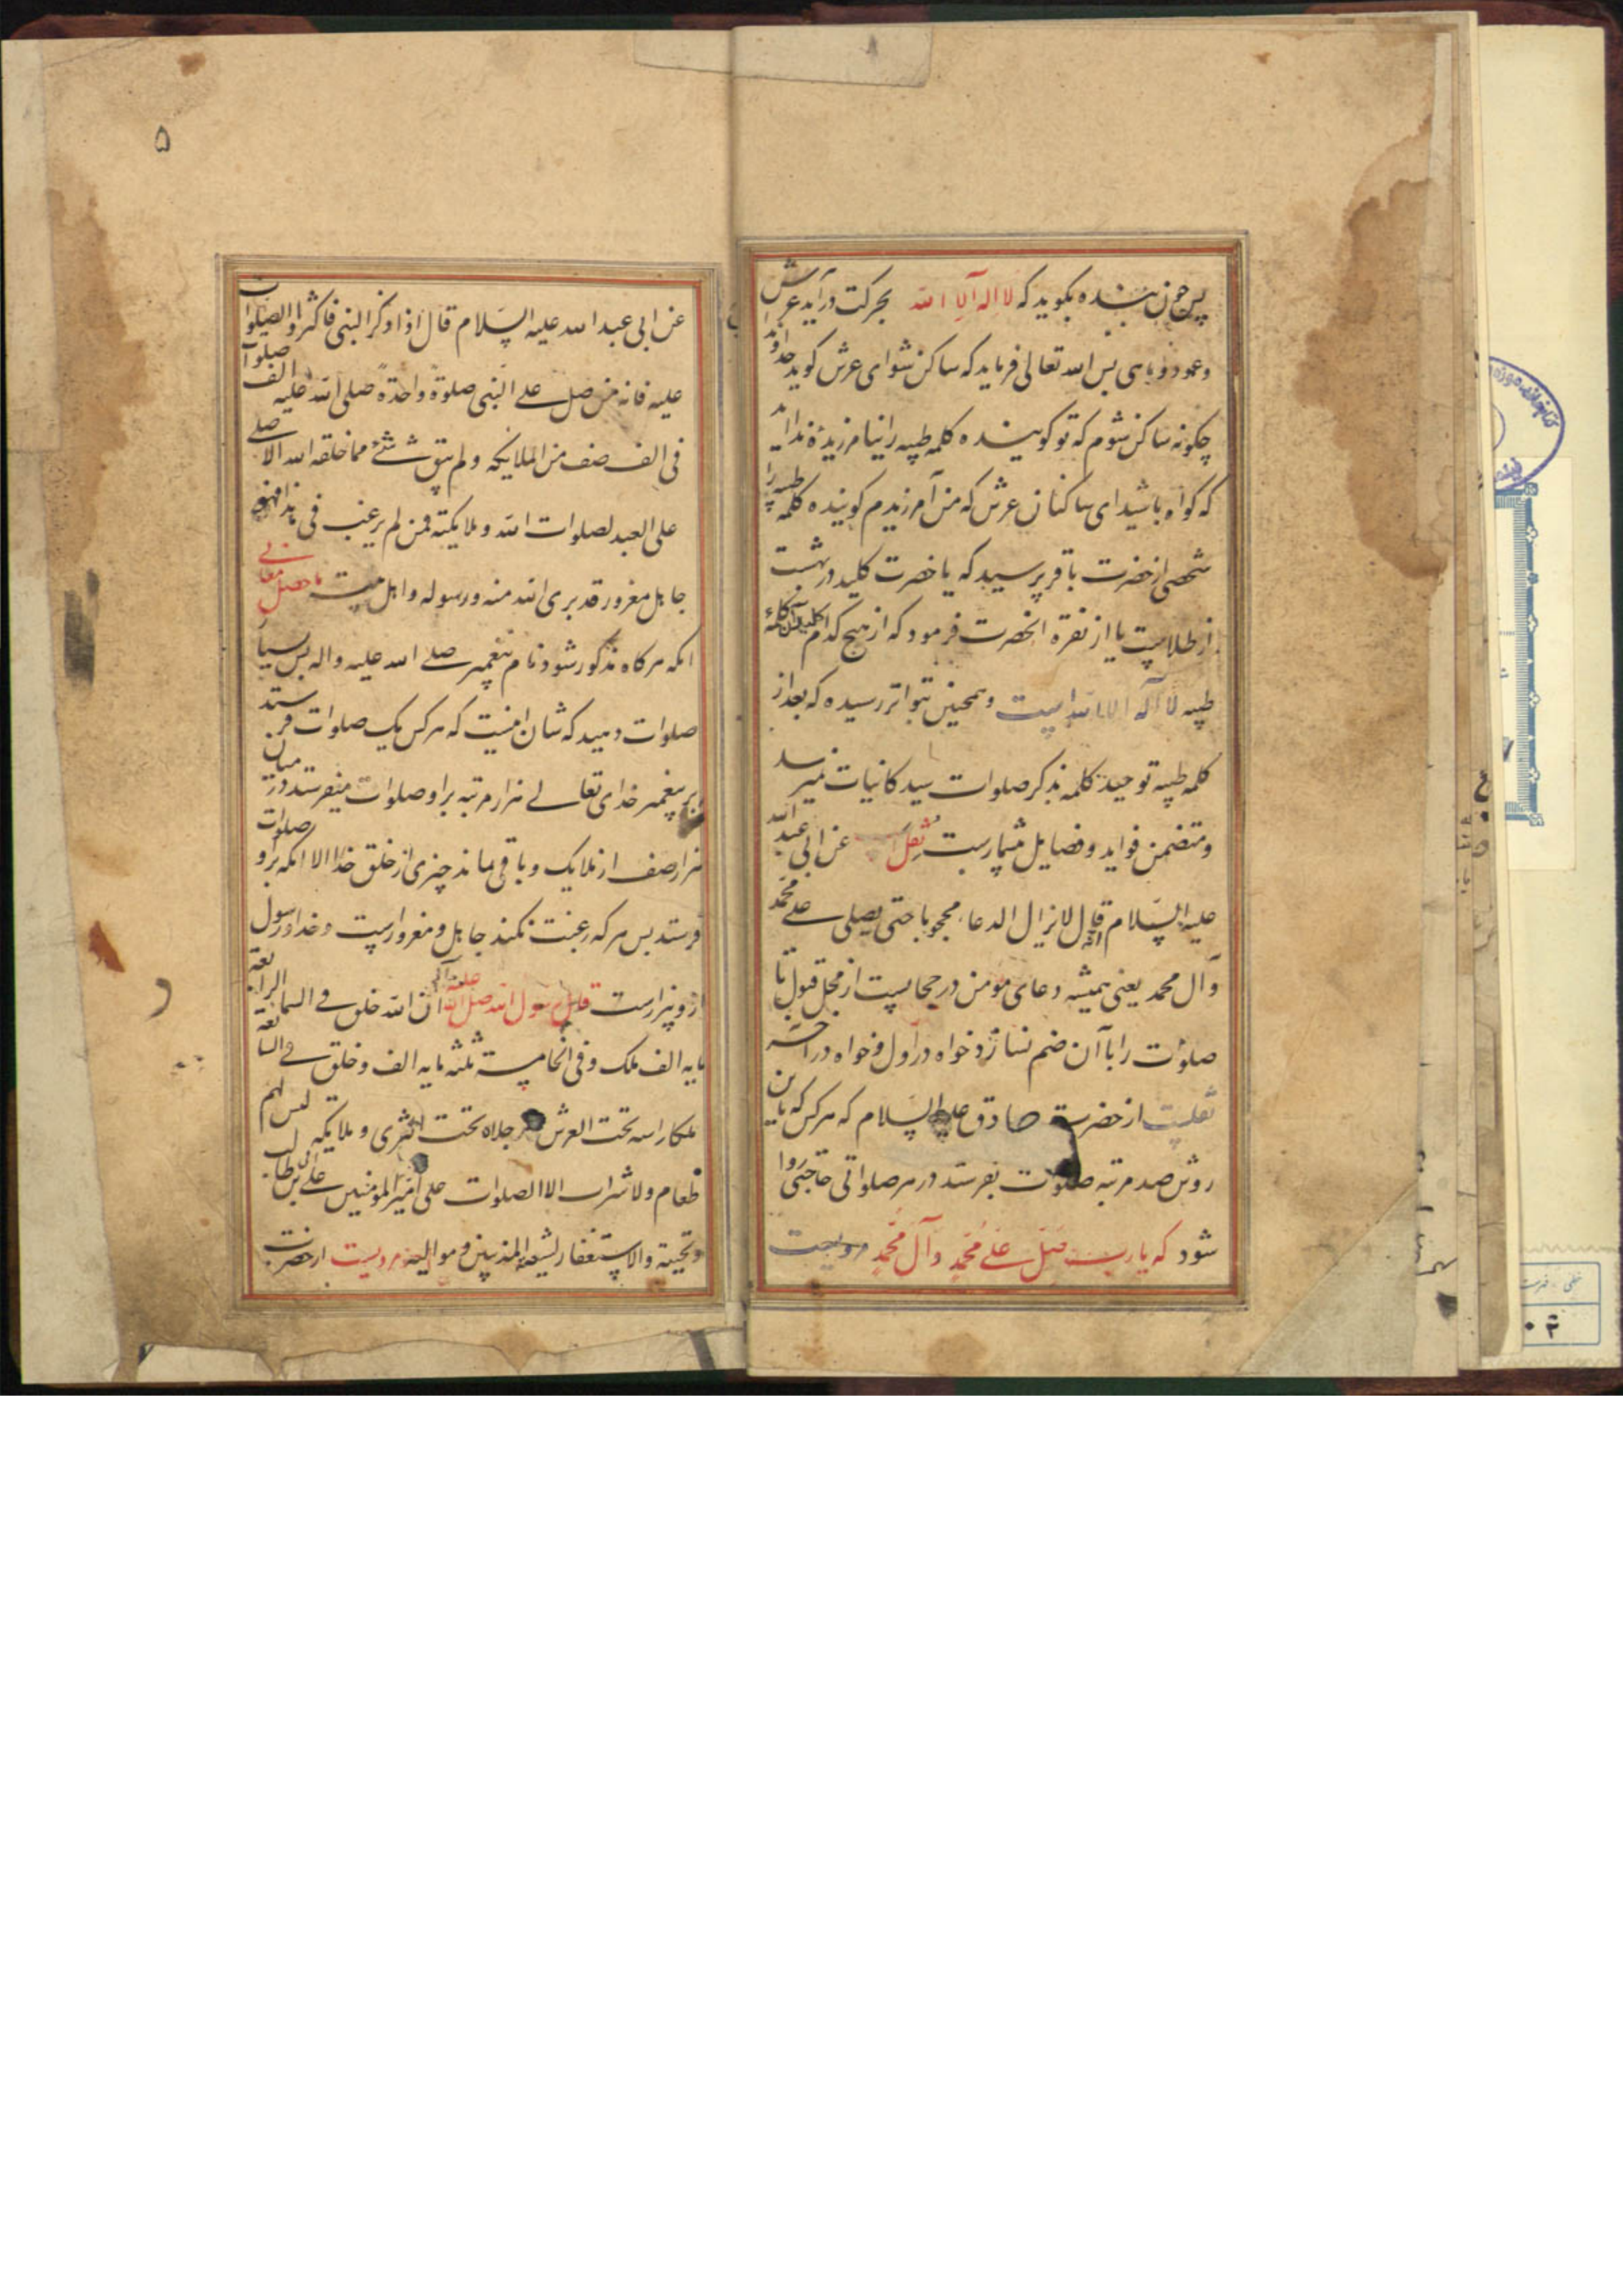 پس چون بنده بکوید که لا اله الا الله بحرکت در آید عرش
و عمود و ماهی پس الله تعالی فرماید که ساکن شو ای عرش کوید خداوندا
چکونه ساکن شوم که تو کوینده کلمه طیبه را نیامرزیدهٔ ندا اید
که کواه باشید ای ساکنان عرش که من آمرزیدم کوینده کلمه طیبه را
شخصی از حضرت باقر پرسید که یا حضرت کلید در بهشت
از طلاست یا از نقره انحضرت فرمود که از هیچ کدام کلید آن کلمهٔ
طیبه لا اله الا الله است و همچنین بتواتر رسیده که بعد از
کلمه طیبه توحید کلمه بذکر صلوات سید کاینات نمیرسد
و متضمن فواید و فضایل بیشمارست نقل است عن ابی عبد الله
علیه السلام قال لا یزال الدعاء محجوبا حتی یصلی علی محمد
و آل محمد یعنی همیشه دعای مؤمن در حجابست از محل قبول تا
صلوات را با آن ضم نسازد خواه در اول و خواه در آخر
نقلست از حضرت صادق علیه السلام که هر کس که باین
روش صد مرتبه صلوات بفرستد در هر صلواتی حاجتی روا
شود که یا رب صل علی محمد و آل محمد مرویست
۵
عن ابی عبد الله علیه السلام قال اذا ذکر النبی فاکثروا الصلوات
علیه فانه من صل علی النبی صلوة واحدة صلی الله علیه الف صلوات
فی الف صف من الملایکه و لم یبق شیٔ مما خلقه الله الا صلی
علی العبد لصلوات الله و ملایکته فمن لم یرغب فی هذا فهو
جاهل مغرور قد بری الله منه و رسوله و اهل بیته ماحصل معانی
انکه هر کاه مذکور شود نام پیغمبر صلی الله علیه و اله پس بسیار
صلوات دهید که شان اینست که هر کس یک صلوات فرستد
بر پیغمبر خدای تعالی هزار مرتبه بر او صلوات میفرستد در میان
هزار صف از ملایک و باقی ماند چیزی از خلق خدا الا انکه برو صلوات
فرستد پس هر که رغبت نکند جاهل و مغرورست و خدا و رسول
ازو بیزارست قال رسول الله صلی الله علیه و آله ان الله خلق فی السماء الرابعة
مایه الف ملک و فی الخامسة ثلثه مایه الف و خلق فی السابعة
ملکا راسه تحت العرش و رجلاه تحت الثری و ملایکه لیس لهم
طعام و لا شراب الا الصلوات علی امیر المومنین علی بن ابی طالب
و محبیه و الاستغفار لشیعته المذنبین و موالیه مرویست از حضرت